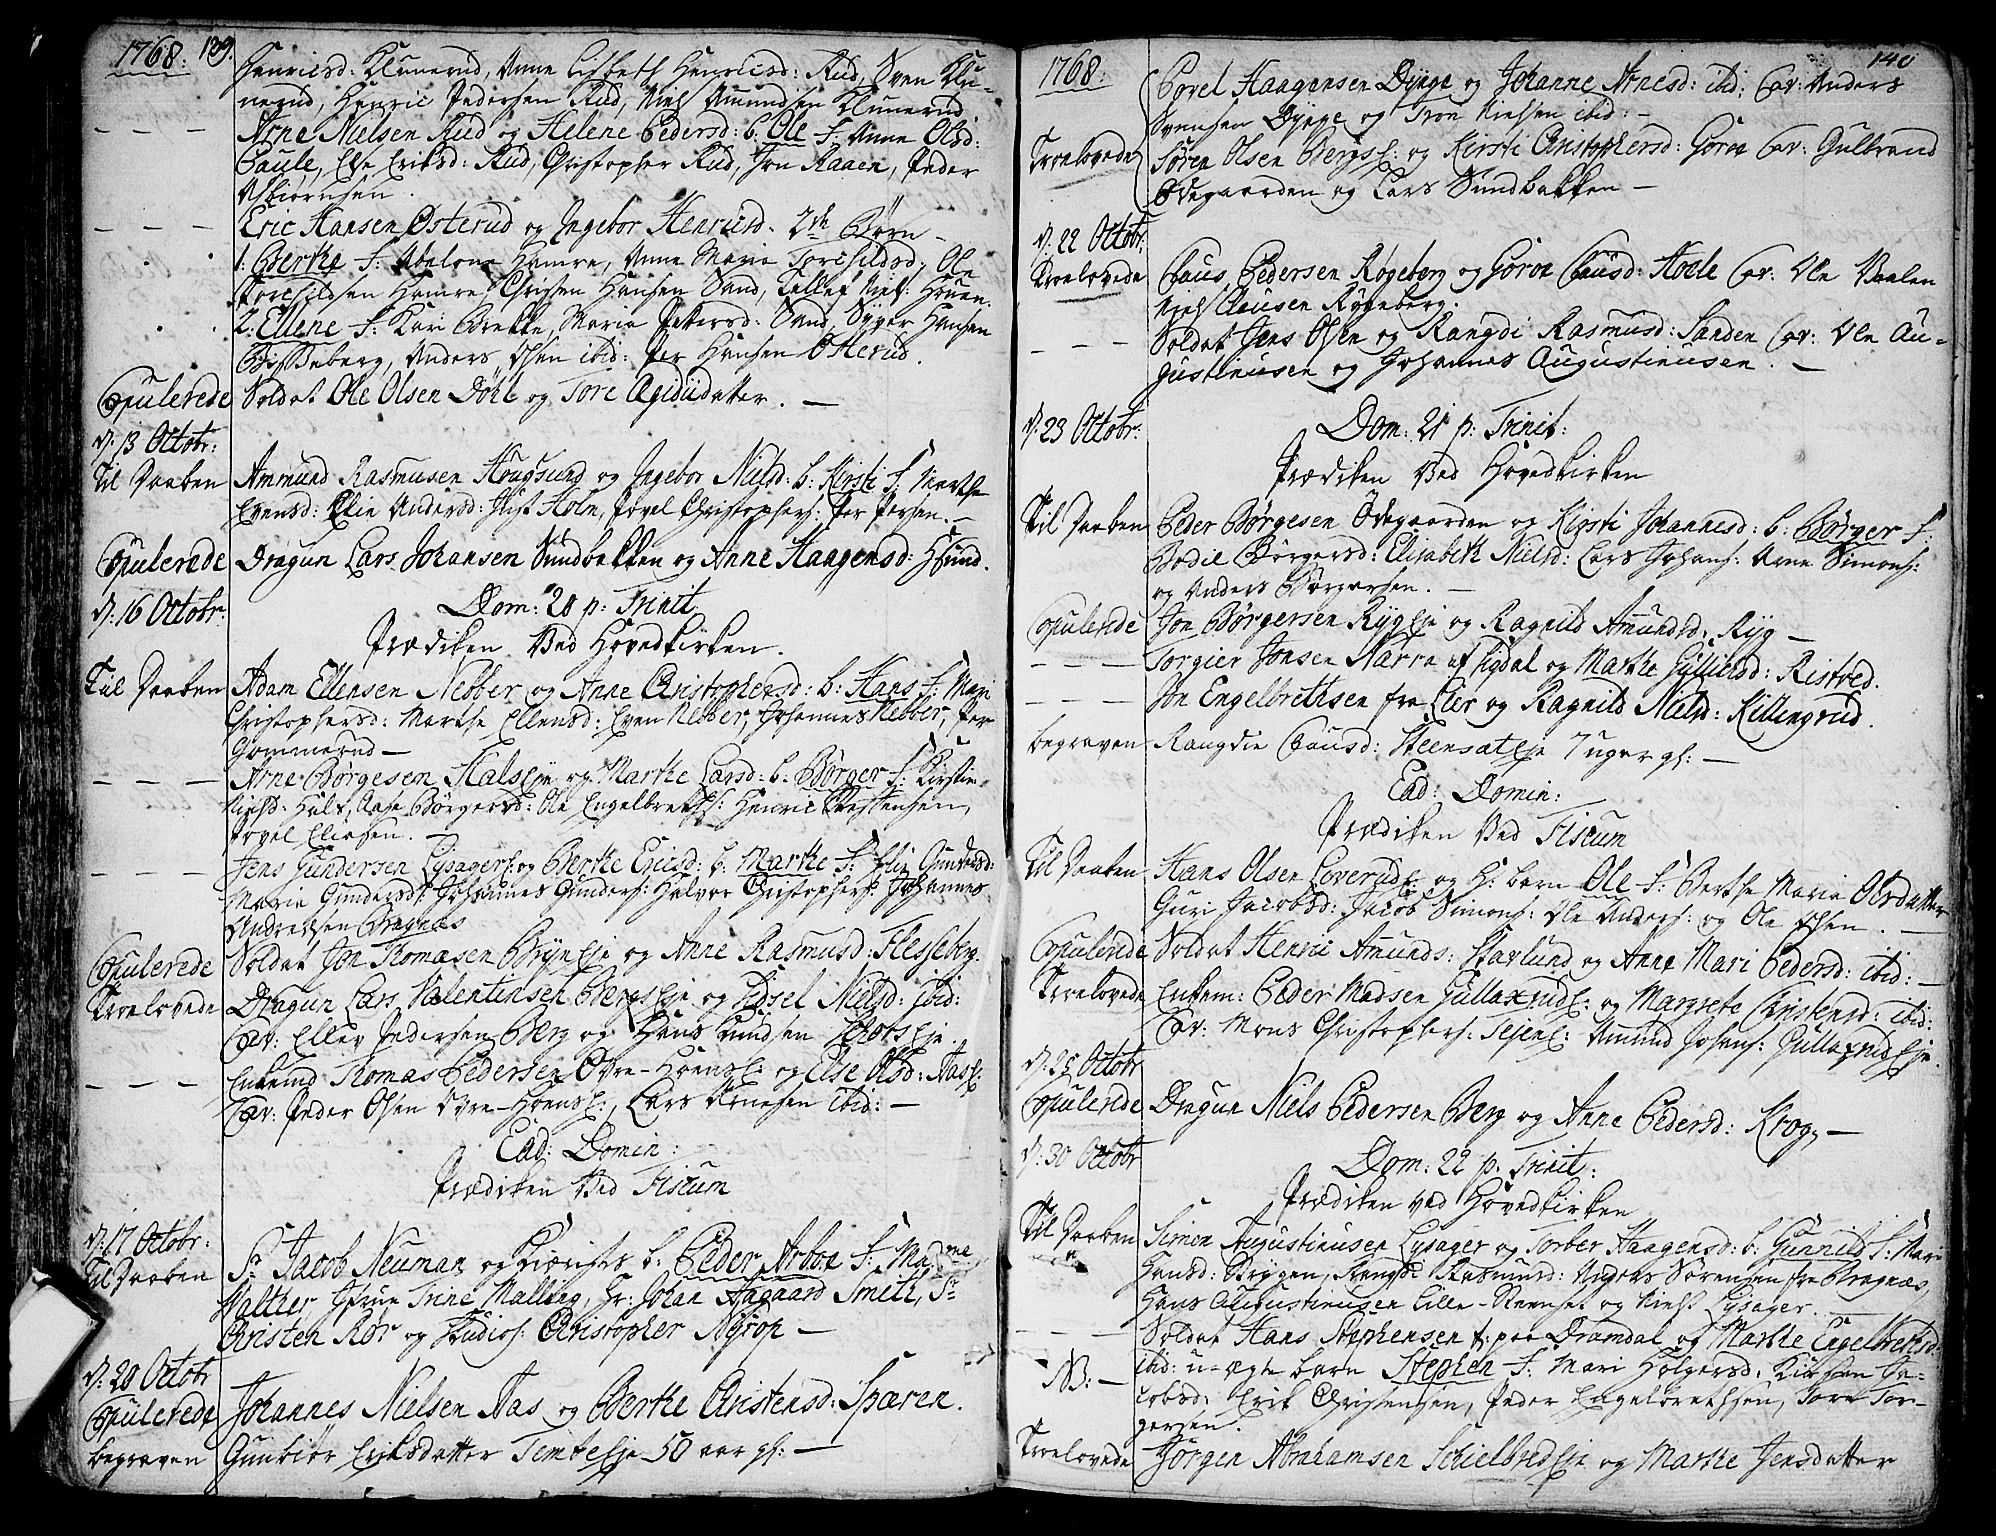 1768. 139.
Henricsd: Klunerud, Anne Lisbeth Henricsd: Rud, Sven Klu-
nerud, Henric Pedersen Rud, Niels Amundsen Klunerud
– – – Arne Nielsen Rud og Helene Pedersd: b: Ole F: Anne Olsd:
Caule, Eli Eriksd: Rud, Christopher Rud, Jon Raaen, Peder
Asbiørnsen.
– – – Eric Hansen Østerud og Ingebor Henricsd: 2de Børn –
1. Berthe F: Abelone Hamre, Anne Maria Torchildsd: Ole
Torchildsen Hamre, Christen Hansen Sand, Tellef Niel: Houen.
2. Ellene F: Kari Brekke, Maria Pettersd: Sand, Syger Hansen
Anders Olsen ibid: Per Hansen Østerud.
Copulerede Soldat Ole Olsen Døhl og Tore Ægidiidatter. –
D: 13 Octobr:
Til Daaben Ammund Rasmusen Hougsund og Ingebor Nielsd: b: Kirsti F: Marthe
Evensd: Elie Andersd: Holm, Povel Christophers: Per Persen. –
Copulerede Dragun Lars Johansen Sundbakken og Anne Haagensd: Hsund.
D: 16 Octobr: Dom: 20 p: Trinit
Prædiken Ved Hovedkirken.
Til Daaben Adam Ellensen Nebber og Anne Christophersd: b: Hans F: Mari
Christophersd: Marthe Ellensd: Even Nebber, Johannes Nebber, Per
Gommerud –
– – – Arne Børgesen Halseje og Marthe Larsd: b: Børger F: Kirstin
Nielsd: Aase Børgersd: Ole Engelbreths: Henric Christensen,
Povel Eliesen. –
– – – Jens Gundersen Lysagere: og Berthe Ericsd: b: Marthe F: Elie Gundersd:
Maria Gundersd: Johannes Gunders: Halvor Christophers: Johannes
Andersen Bragnæs
Copulerede Soldat Jon Thomasen Bryneje og Anne Rasmusd: Flesseberg.
Troelovede Dragun Lars Valentinsen Bergseje og Sidsel Nielsd: ibid:
Cav: Ellev Pedersen Berg og Hans Knudsen
– – – Enkemd Thomas Pedersen Øvre-Hoense: og Else Olsd: Aase:
Cav: Peder Olsen Øvre-Hoense:, Lars Arnesen ibid: –
Ead: Domin:
Prædiken Ved Fiscum
D: 17 Octobr:
Til Daaben Sr Jacob Neuman og Kiæristes b: Peder Arboe F: Madme
Walther, Jfrue Trine Malling, Hr: Johan Aagaard Smith, Sr
Christen Rør og Studios: Christopher Nyrop –
D: 20 Octobr
Copulerede Johannes Nielsen Aas og Berthe Christensd: Spæren.
begraven Gunbior Eriksdatter Temteeje 50 aar gl: –
1768: 140
Povel Haagensen Dynge og Johanne Arnesd: ibid: Cav: Anders
Svensen Dynge og Tron Nielsen ibid: –
Troelovede Søren Olsen Bergse: og Kirsti Christophersd: Goroe Cav: Gulbrand
Ødegaarden og Lars Sundbakken –
D: 22 Octobr.
Troelovede Claus Pedersen Røgeberg og Goroe Clausd: Hoele Cav: Ole Vaalen
Niels Clausen Røgeberg.
– – – Soldat Jens Olsen og Rangdi Rasmusd: Sanden Cav: Ole Au-
gustinusen og Johannes Augustinusen. –
D: 23 Octobr: Dom: 21 p: Trinit:
Prædiken Ved Hovedkirken
Til Daaben Peder Børgesen Ødegaarden og Kirsti Johannesd: b: Børger F:
Bodil Børgersd: Elisabeth Nielsd: Lars Johans: Arne Simons:
og Anders Børgersen. –
Copulerede Jon Børgersen Rygeje og Ragnild Amundsd: Ryg –
– – – Torgier Jonsen Narra af Sigdal og Marthe Gullicsd: Ristved.
– – – Jon Engelbrethsen fra Lier og Ragnild Nielsd: Killingrud.
begraven Rangdie Clausd: Steensateje 7 uger gl: –
Ead: Domin:
Prædiken Ved Fiscum
Til Daaben Hans Olsen Loverude: og H: barn Ole F: Berthe Maria Olsdatter
Guri Jacobsd: Jacob Simons: Ole Anders: og Ole Olsen. –
Copulerede Soldat Henric Amunds: Starlund og Anne Mari Pedersd: ibid: –
Troelovede Enkem: Peder Madsen Gullaxrude: og Margrete Christensd: ibid:
Cav: Mons Christophers: Tejene: Amund Johans: Gullaxrudeje.
D: 25 Octobr
Copulerede Dragun Niels Pedersen Berg og Anne Pedersd: Krog, –
D: 30 Octobr Dom: 22 p: Trinit:
Prædiken ved Hovedkirken
Til Daaben Simen Augustinusen Lysager og Torber Haagensd: b: Gunnild F: Mari
Hansd: Brygen, Rangdi Rasmusd: Anders Sørensen fra Bragnæs,
Hans Augustinusen Lille- og Niels Lysager.
– – – Soldat Hans Stephensen f: paa Dramdal og Marthe Engelbrethsd:
NB: – ibid: u-ægte barn Stephen F: Mari Holgersd: Kirsten Ja-
cobsd: Erik Christensen, Peder Engelbrethsen, Tore Tor-
gersen.
Troelovede Jørgen Abrahamsen Schielbredeje og Marthe Jensdatter